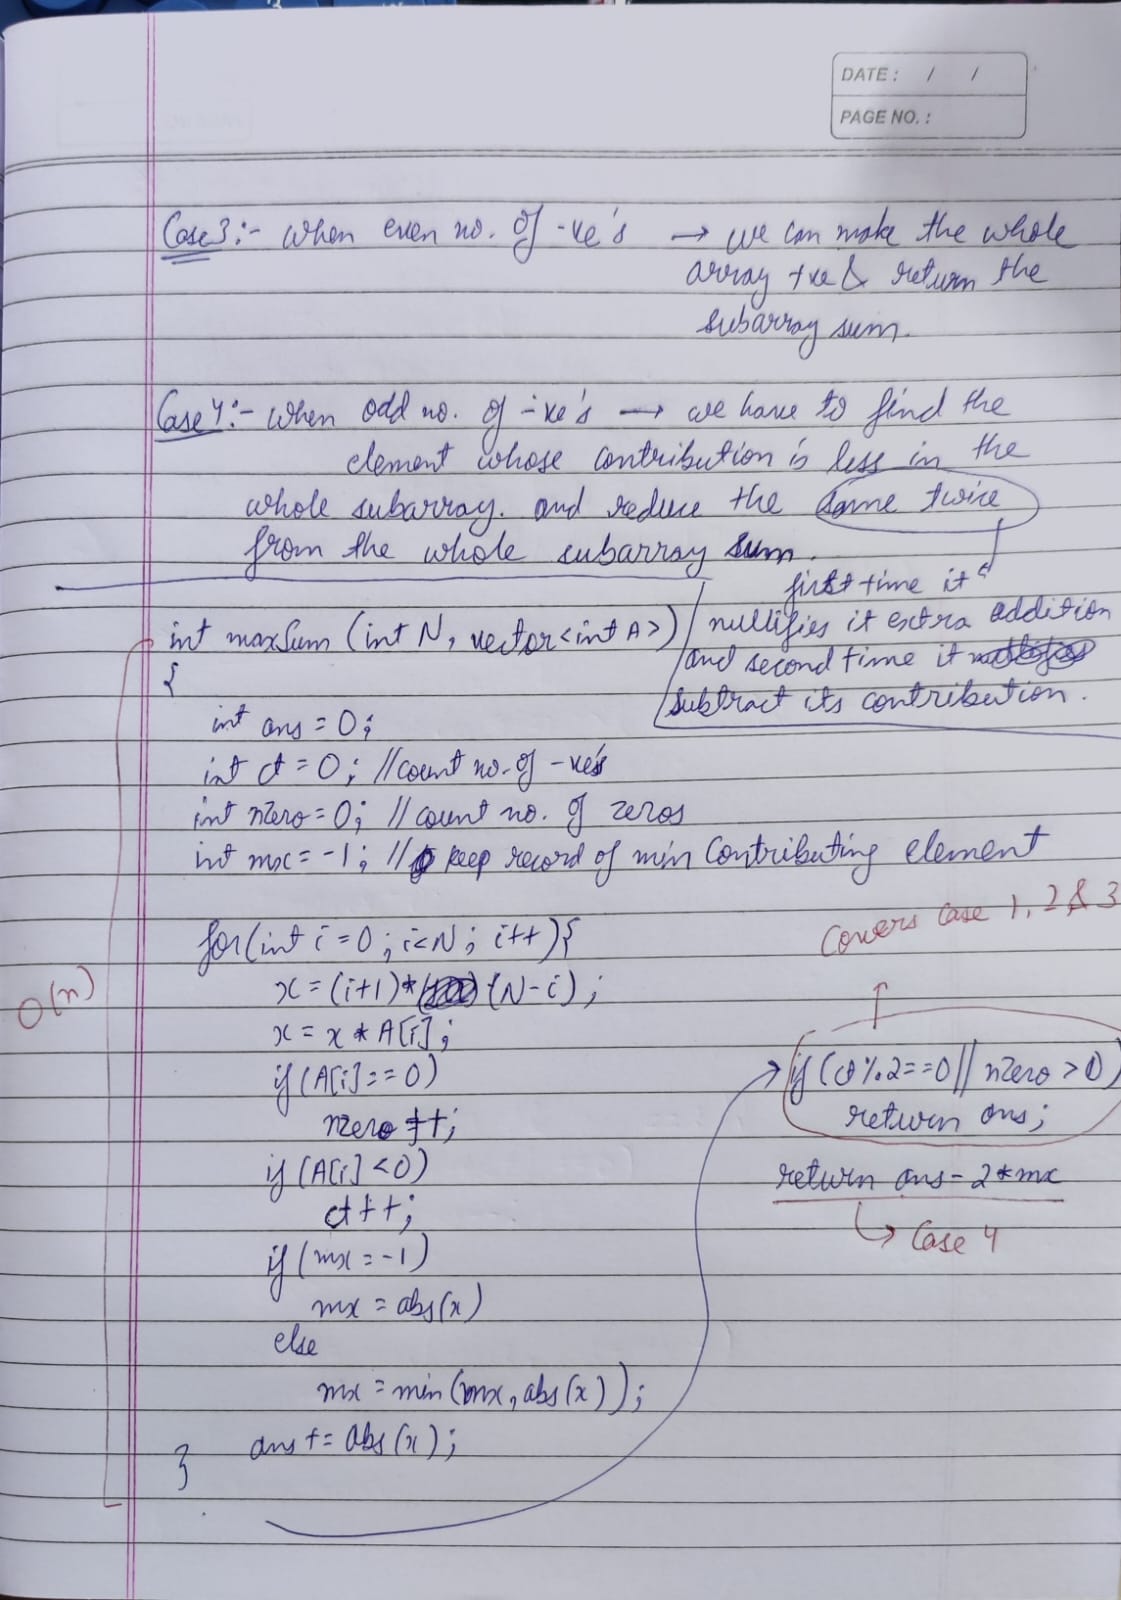 DATE : / /
PAGE NO. :
Case 3:- When even no. of -ve's → we can make the whole
array +ve & return the
subarray sum.
Case 4:- When odd no. of -ve's → we have to find the
element whose contribution is less in the
whole subarray. and reduce the same twice
from the whole subarray sum.
first time it
nullifies it extra addition
and second time it
subtract its contribution.
int maxSum (int N, vector<int A>)
{
int ans = 0;
int ct = 0; //count no. of -ve's
int nzero = 0; // count no. of zeros
int mx = -1; // keep record of min Contributing element
for(int i = 0; i<N; i++){
x = (i+1)* (N-i);
x = x * A[i];
if (A[i]==0)
nzero ++;
if (A[i] <0)
ct++;
if (mx = -1)
mx = abs(x)
else
mx = min(mx, abs(x));
ans += abs(x);
}
O(n)
Covers Case 1, 2 & 3
if (ct%2==0 || nzero > 0)
return ans;
return ans - 2*mx
Case 4